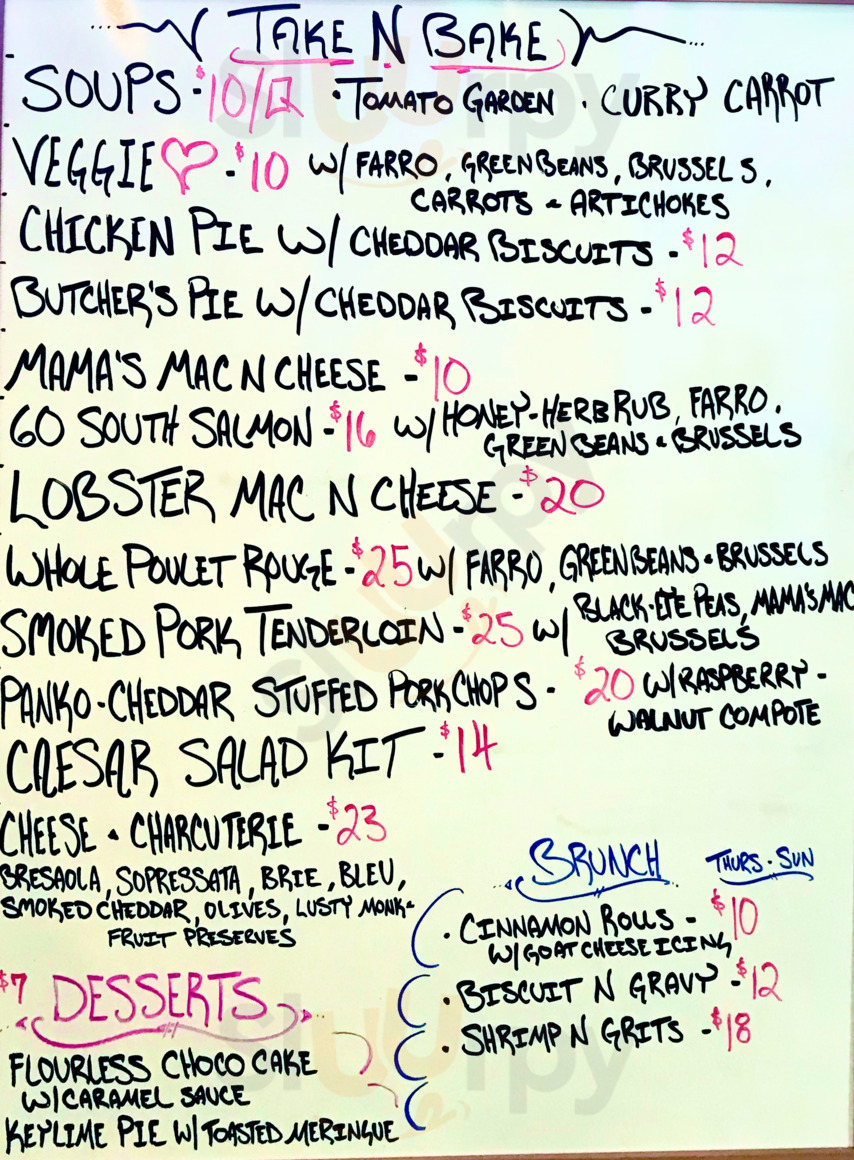 TAKE N BAKE
SOUPS - $10/Q · TOMATO GARDEN · CURRY CARROT
VEGGIE ♡ - $10 W/ FARRO, GREEN BEANS, BRUSSELS,
CARROTS & ARTICHOKES
CHICKEN PIE W/ CHEDDAR BISCUITS - $12
BUTCHER'S PIE W/ CHEDDAR BISCUITS - $12
MAMA'S MAC N CHEESE - $10
GO SOUTH SALMON - $16 W/ HONEY-HERB RUB, FARRO,
GREEN BEANS & BRUSSELS
LOBSTER MAC N CHEESE - $20
WHOLE POULET ROUGE - $25 W/ FARRO, GREEN BEANS & BRUSSELS
SMOKED PORK TENDERLOIN - $25 W/ BLACK-EYE PEAS, MAMA'S MAC
BRUSSELS
PANKO-CHEDDAR STUFFED PORK CHOPS - $20 W/ RASPBERRY-
WALNUT COMPOTE
CAESAR SALAD KIT - $14
CHEESE & CHARCUTERIE - $23
BRESAOLA, SOPRESSATA, BRIE, BLEU,
SMOKED CHEDDAR, OLIVES, LUSTY MONK &
FRUIT PRESERVES
$7 DESSERTS
FLOURLESS CHOCO CAKE
W/ CARAMEL SAUCE
KEYLIME PIE W/ TOASTED MERINGUE
BRUNCH THURS - SUN
· CINNAMON ROLLS - $10
W/ GOAT CHEESE ICING
· BISCUIT N GRAVY - $12
· SHRIMP N GRITS - $18
sluurpy
sluurpy
sluurpy